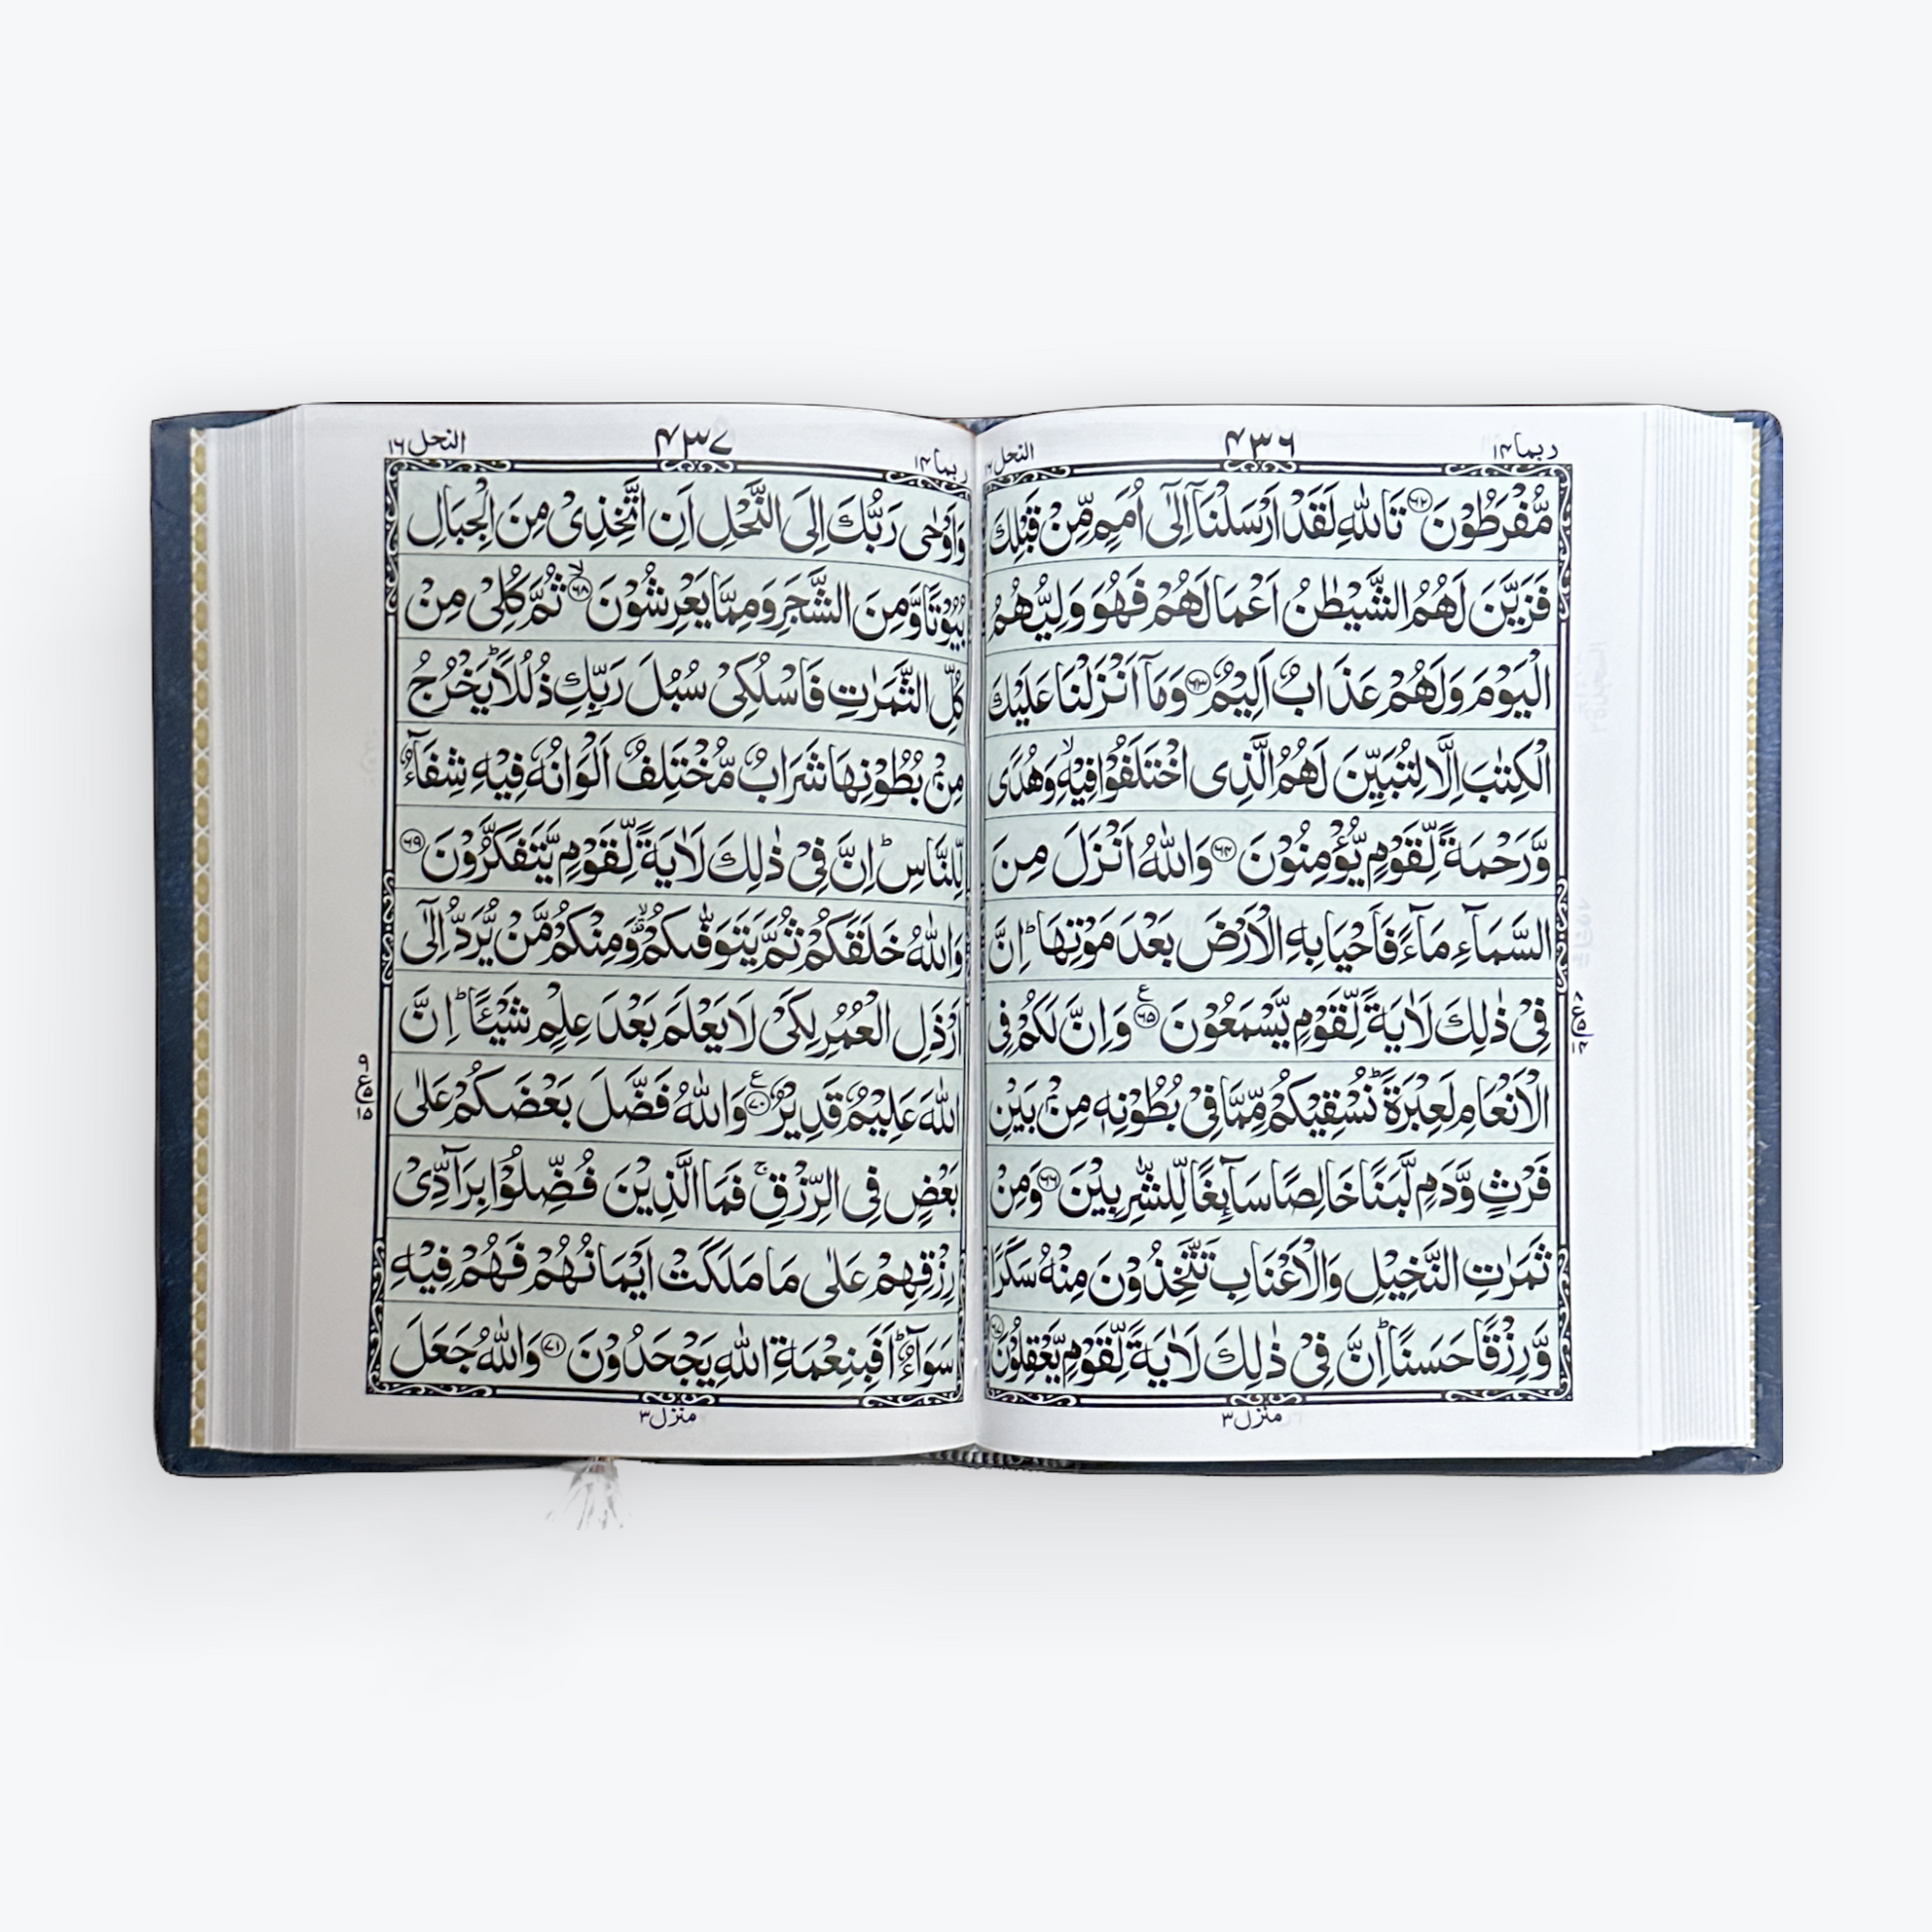 ربما ١٤
٤٣٦
النحل ١٦
مُّفْرَطُوْنَ ﴿۶۲﴾ تَاللّٰهِ لَقَدْ اَرْسَلْنَاۤ اِلٰۤى اُمَمٍ مِّنْ قَبْلِكَ
فَزَيَّنَ لَهُمُ الشَّيْطٰنُ اَعْمَالَهُمْ فَهُوَ وَلِيُّهُمُ
الْيَوْمَ وَلَهُمْ عَذَابٌ اَلِيْمٌ ﴿۶۳﴾ وَمَاۤ اَنْزَلْنَا عَلَيْكَ
الْكِتٰبَ اِلَّا لِتُبَيِّنَ لَهُمُ الَّذِى اخْتَلَفُوْا فِيْهِ ۙ وَهُدًى
وَّرَحْمَةً لِّقَوْمٍ يُّؤْمِنُوْنَ ﴿۶۴﴾ وَاللّٰهُ اَنْزَلَ مِنَ
السَّمَآءِ مَآءً فَاَحْيَا بِهِ الْاَرْضَ بَعْدَ مَوْتِهَا ؕ اِنَّ
فِىْ ذٰلِكَ لَاٰيَةً لِّقَوْمٍ يَّسْمَعُوْنَ ﴿۶۵﴾ ع وَاِنَّ لَكُمْ فِى
الْاَنْعَامِ لَعِبْرَةً ؕ نُسْقِيْكُمْ مِّمَّا فِىْ بُطُوْنِهٖ مِنْۢ بَيْنِ
فَرْثٍ وَّدَمٍ لَّبَنًا خَالِصًا سَآئِغًا لِّلشّٰرِبِيْنَ ﴿۶۶﴾ وَمِنْ
ثَمَرٰتِ النَّخِيْلِ وَالْاَعْنَابِ تَتَّخِذُوْنَ مِنْهُ سَكَرًا
وَّرِزْقًا حَسَنًا ؕ اِنَّ فِىْ ذٰلِكَ لَاٰيَةً لِّقَوْمٍ يَّعْقِلُوْنَ ﴿۶۷﴾
منزل ٣
ربما ١٤
٤٣٧
النحل ١٦
وَاَوْحٰى رَبُّكَ اِلَى النَّحْلِ اَنِ اتَّخِذِىْ مِنَ الْجِبَالِ
بُيُوْتًا وَّمِنَ الشَّجَرِ وَمِمَّا يَعْرِشُوْنَ ﴿۶۸﴾ ۙ ثُمَّ كُلِىْ مِنْ
كُلِّ الثَّمَرٰتِ فَاسْلُكِىْ سُبُلَ رَبِّكِ ذُلُلًا ؕ يَخْرُجُ
مِنْۢ بُطُوْنِهَا شَرَابٌ مُّخْتَلِفٌ اَلْوَانُهٗ فِيْهِ شِفَآءٌ
لِّلنَّاسِ ؕ اِنَّ فِىْ ذٰلِكَ لَاٰيَةً لِّقَوْمٍ يَّتَفَكَّرُوْنَ ﴿۶۹﴾
وَاللّٰهُ خَلَقَكُمْ ثُمَّ يَتَوَفّٰىكُمْ ۙ وَمِنْكُمْ مَّنْ يُّرَدُّ اِلٰۤى
اَرْذَلِ الْعُمُرِ لِكَىْ لَا يَعْلَمَ بَعْدَ عِلْمٍ شَيْـًٔا ؕ اِنَّ
اللّٰهَ عَلِيْمٌ قَدِيْرٌ ﴿۷۰﴾ ع وَاللّٰهُ فَضَّلَ بَعْضَكُمْ عَلٰى
بَعْضٍ فِى الرِّزْقِ ۚ فَمَا الَّذِيْنَ فُضِّلُوْا بِرَآدِّىْ
رِزْقِهِمْ عَلٰى مَا مَلَكَتْ اَيْمَانُهُمْ فَهُمْ فِيْهِ
سَوَآءٌ ؕ اَفَبِنِعْمَةِ اللّٰهِ يَجْحَدُوْنَ ﴿۷۱﴾ وَاللّٰهُ جَعَلَ
منزل ٣